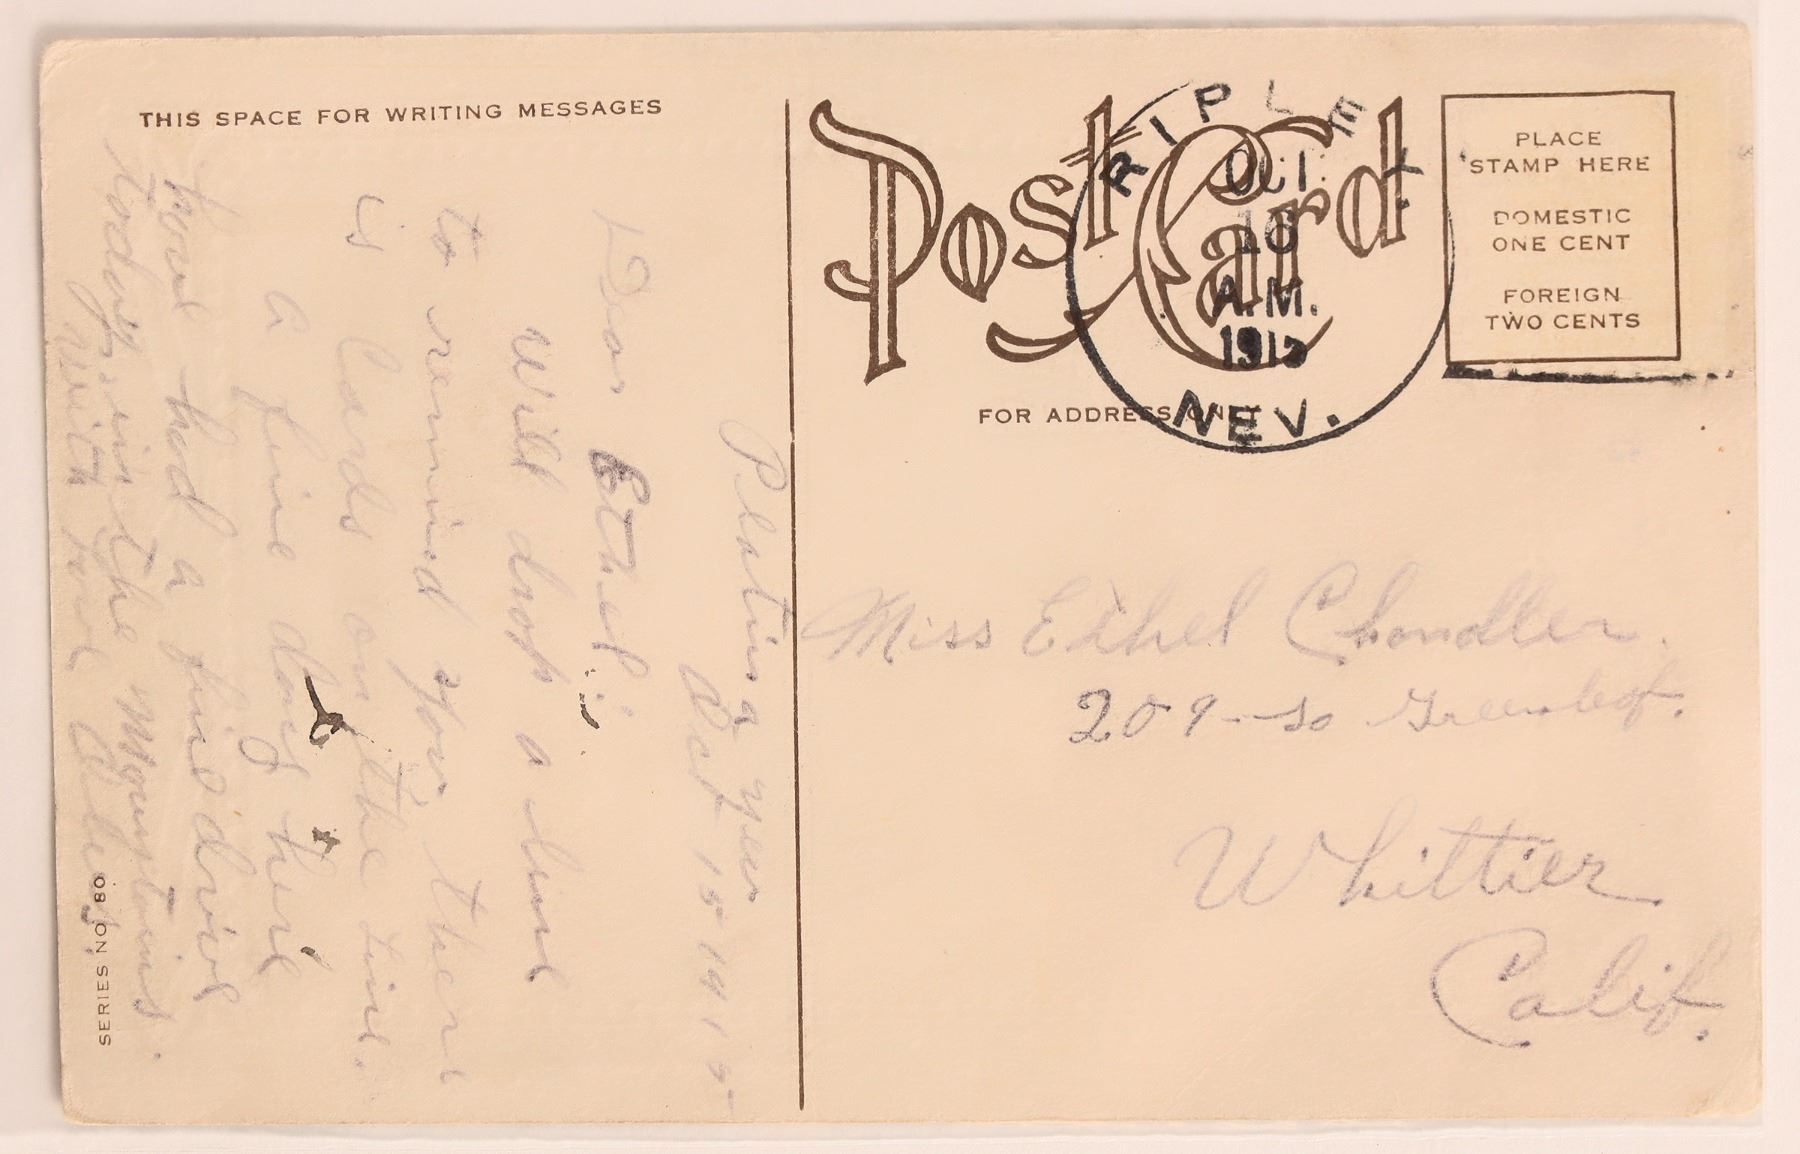 THIS SPACE FOR WRITING MESSAGES
Platina Nev
Oct 15 1915
Dear Ethel:
Will drop a line
to remind you there
is cards on the line.
a fine day here
have had a fine drive
today, in the Mountains.
with love
SERIES NO 80
Post Card
RIPLEY.
OCT.
16
A.M.
1915
NEV.
PLACE
STAMP HERE
DOMESTIC
ONE CENT
FOREIGN
TWO CENTS
FOR ADDRESS ONLY
Miss Ethel Chandler.
209 - So Greenleaf.
Whittier
Calif.